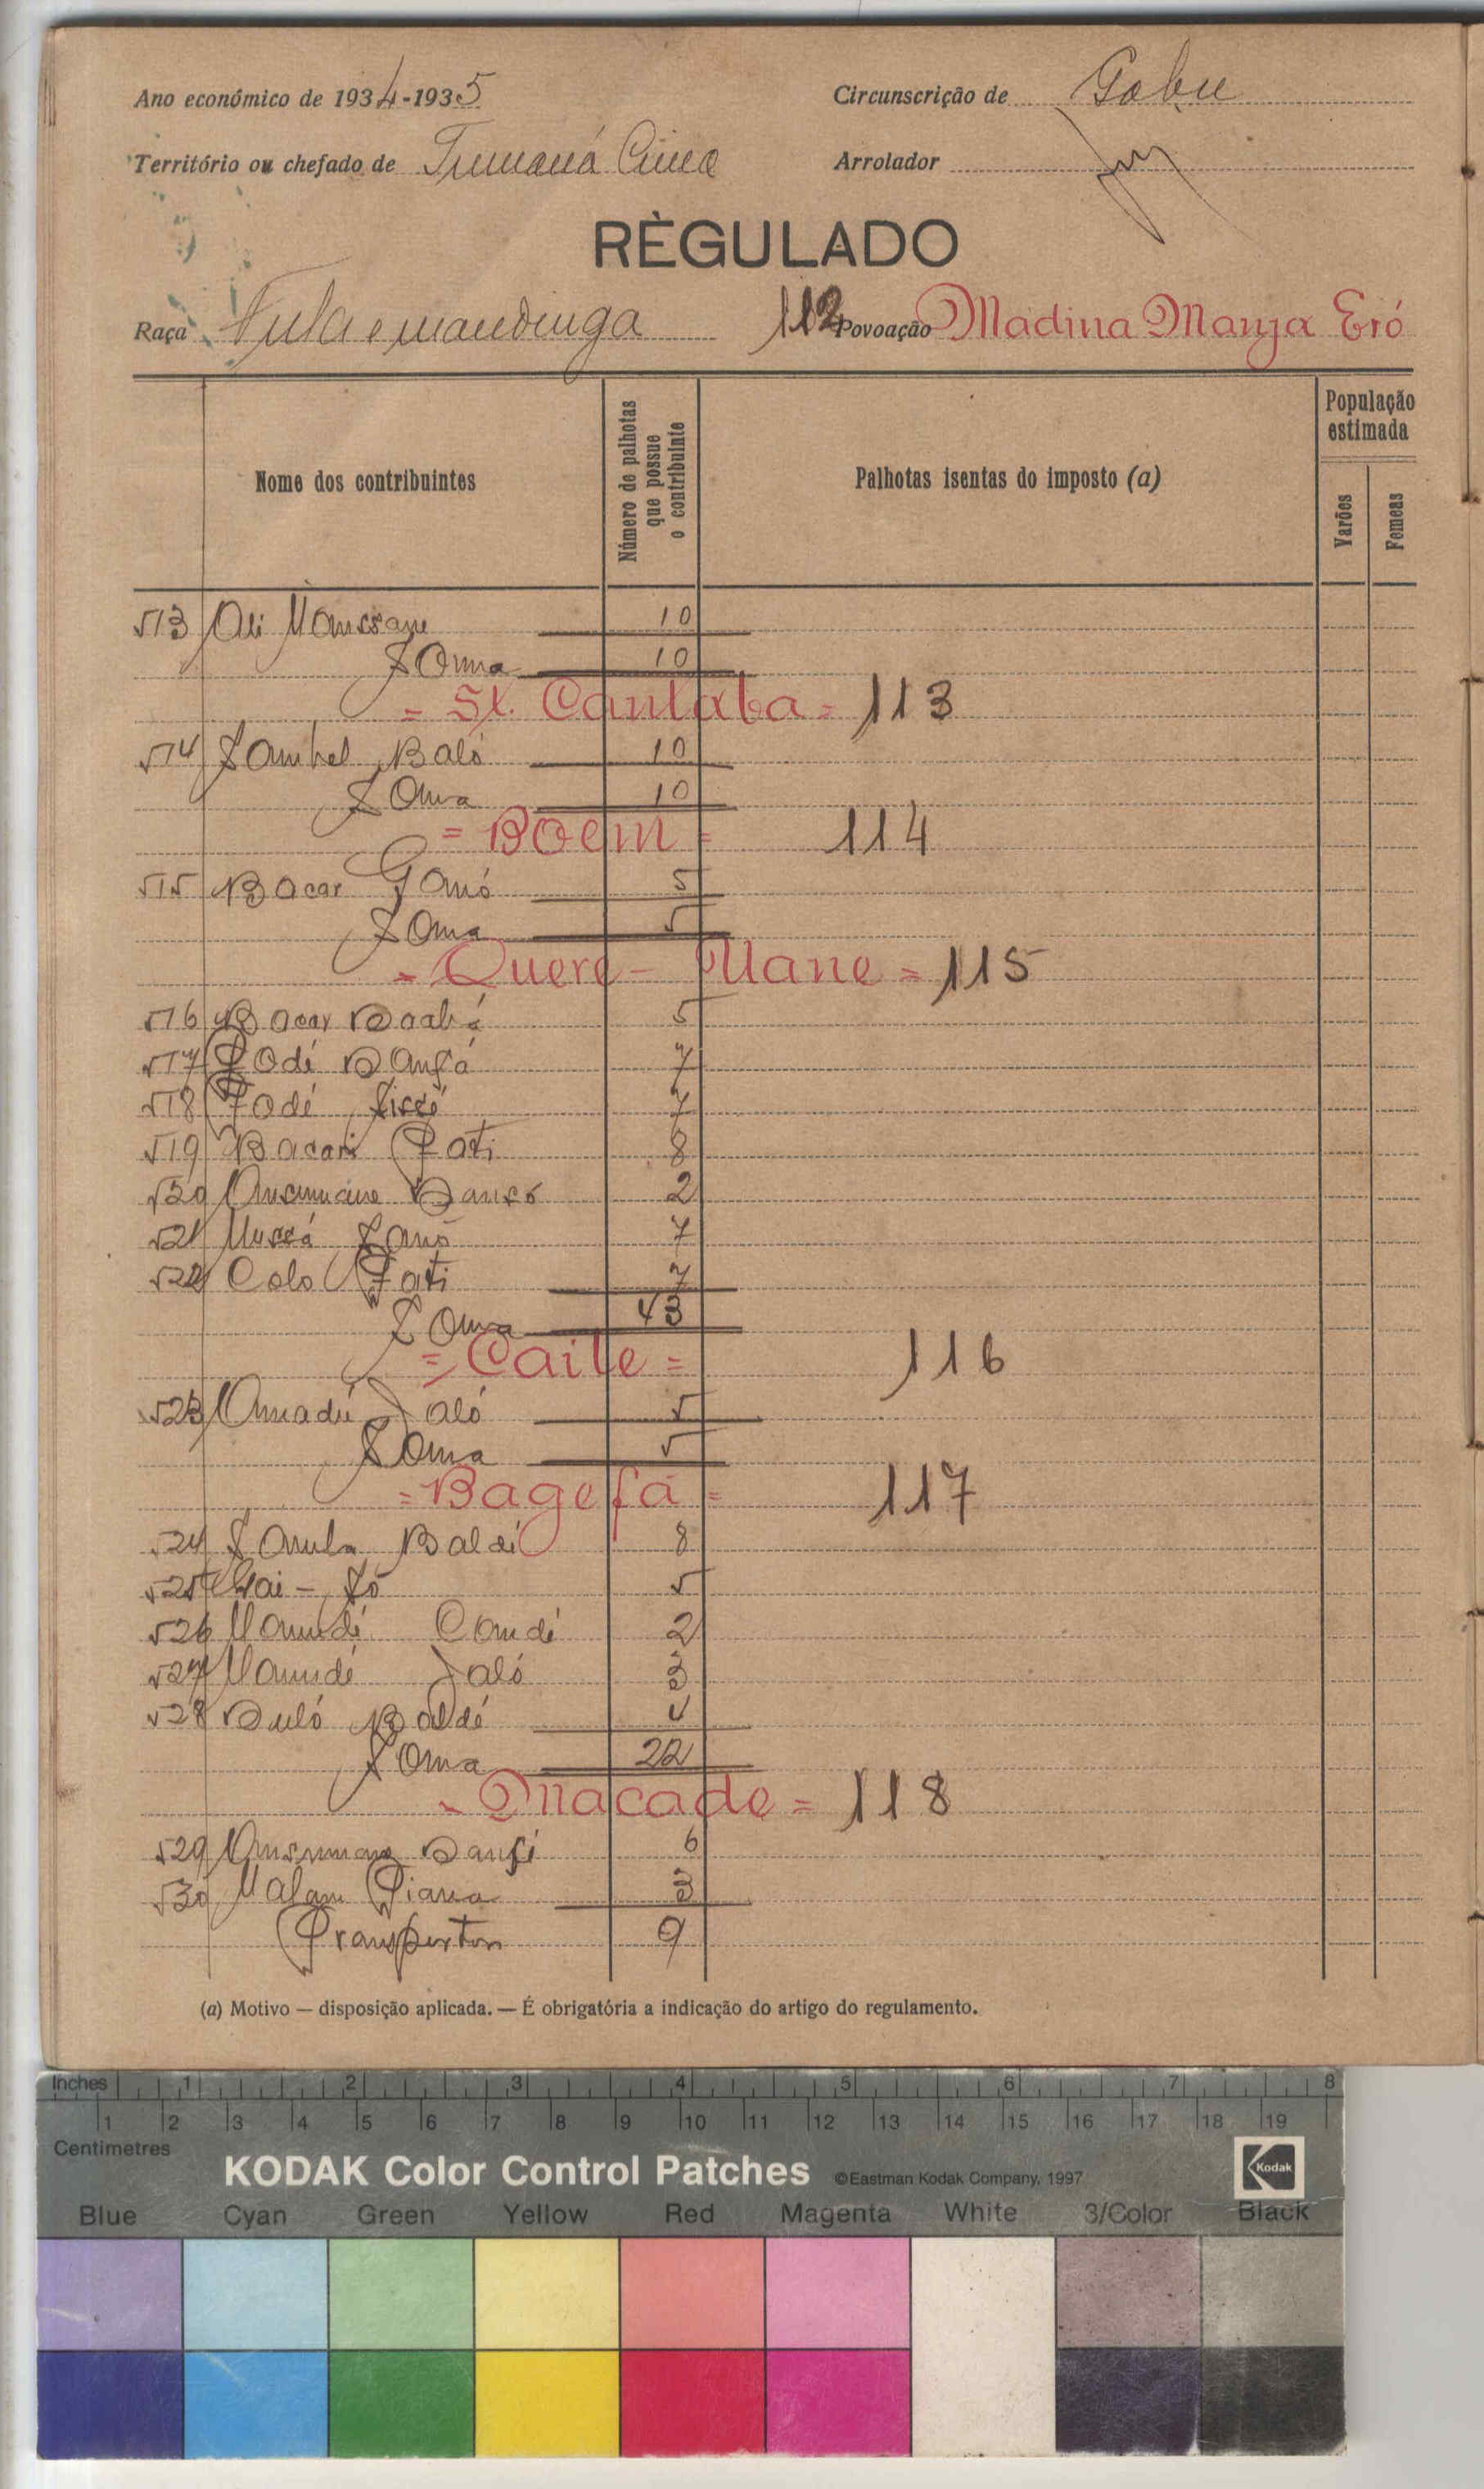 Ano económico de 1934-1935 Circunscrição de Gabu
Território ou chefado de Tumaná Cima Arrolador
RÈGULADO
Raça Fula e mandinga 112 Povoação Madina Manja Eió
Nome dos contribuintes
Número de palhotas que possue o contribuinte
Palhotas isentas do imposto (a)
População estimada
Varões
Femeas
513 Ali Manssane 10
Soma 10
= St. Cantaba = 113
514 Sambel Baló 10
Soma 10
= Boem = 114
515 Bacar Ganó 5
Soma 5
= Quere - Mane = 115
516 Bacar Daabó 5
517 Fodé Danfá 7
518 Fodé Sissé 7
519 Bacari Fati 8
520 Ansumane Dansó 2
521 Mussá Sanó 7
522 Colo Fati 7
Soma 43
= Caite = 116
523 Amadú Jaló 5
Soma 5
= Bagefá = 117
524 Samba Baldé 8
525 Só 5
526 Mamudé Candé 2
527 Mamudé Jaló 3
528 Duló Baldé 4
Soma 22
= Macade = 118
529 Ansumane Danfá 6
530 Malam Fiana 3
Transportar 9
(a) Motivo — disposição aplicada. — É obrigatória a indicação do artigo do regulamento.
Inches 1 2 3 4 5 6 7 8
1 2 3 4 5 6 7 8 9 10 11 12 13 14 15 16 17 18 19
Centimetres
KODAK Color Control Patches ©Eastman Kodak Company, 1997 Kodak
Blue Cyan Green Yellow Red Magenta White 3/Color Black